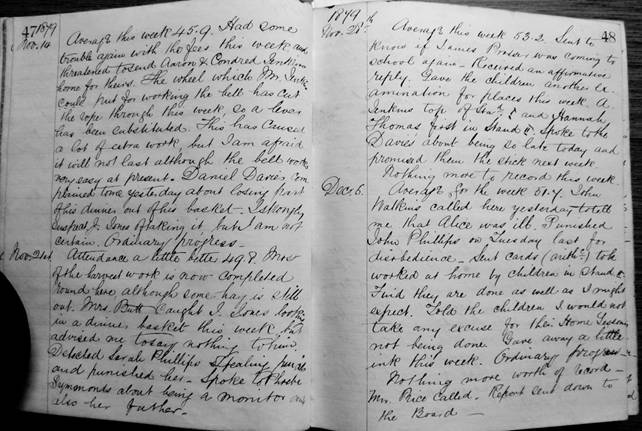 47 1879
Nov. 14 Average this week 45.9. Had some
trouble again with the fees this week and
threatened to send Aaron & Condred Jenkins
home for theirs. The wheel which Mr. Jenkins
could put for working the bell has cut
the rope through this week, so a lever
has been substituted. This has caused
a lot of extra work, but I am afraid
it will not last although the bell works
very easy at present. Daniel Davies com
plained to me yesterday about losing part
of his dinner out of his basket. I strongly
suspect J. Jones of taking it, but I am not
certain. Ordinary progress.
Nov. 21st Attendance a little better 49.8 Most
of the harvest work is now completed
round here although some hay is still
out. Mrs. Butt Caught J. Jones looking
in a dinner basket this week but
advised me to say nothing to him
Detected Sarah Phillips stealing
and punished her. Spoke to Phoebe
Symmonds about being a monitor and
also her father.
1879 48
Nov. 28th Average this week 53.2. Sent to
know if James Price was coming to
school again. Received an affirmative
reply. Gave the children another Ex
amination for places this week. A.
Jenkins top of Stan. I and Hannah
Thomas first in Stand II. Spoke to the
Davies about being so late today and
promised them the stick next week.
Nothing more to record this week.
Dec. 6. Average for the week 51.4. John
Watkins called here yesterday to tell
me that Alice was ill. Punished
John Phillips on Tuesday last for
disobedience. Sent cards (arith.) to be
worked at home by children in Stand
Find they are done as well as I might
expect. Told the children I would not
take any excuse for their Home Lessons
not being done. Gave away a little
ink this week. Ordinary progress.
Nothing more worth of record.
Mrs. Price Called. Report sent down to
the Board